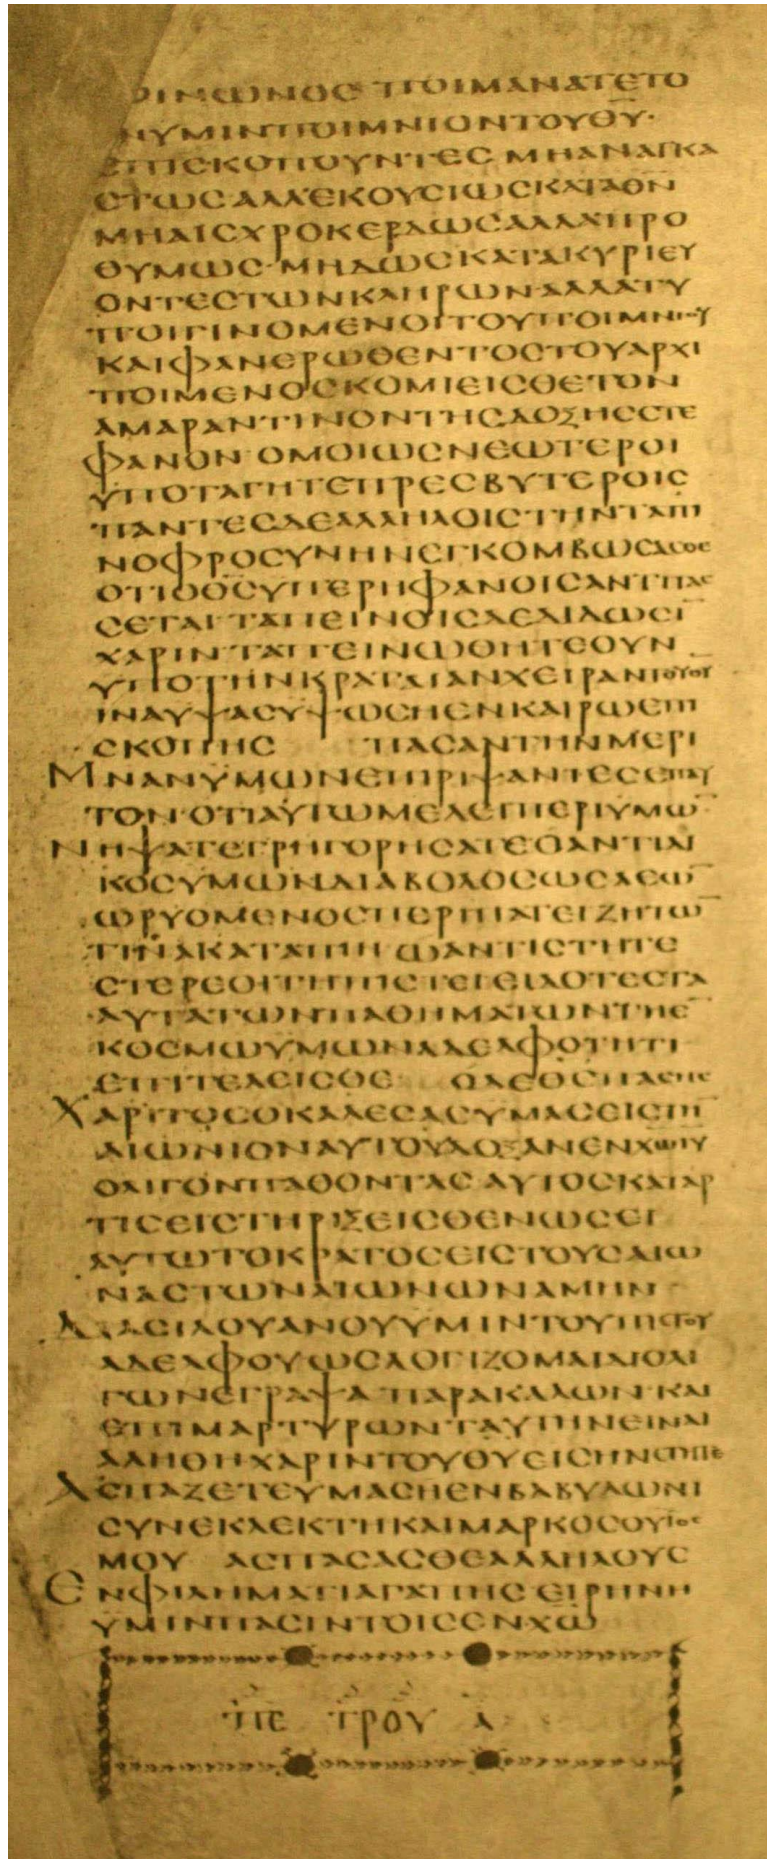 ΟΙΝΩΝΟΣ ΠΟΙΜΑΝΑΤΕΤΟ
ΝΥΜΙΝΠΟΙΜΝΙΟΝΤΟΥΘΥ·
ΕΠΙΣΚΟΠΟΥΝΤΕΣ ΜΗΑΝΑΓΚΑ
ΣΤΩΣΑΛΛΕΚΟΥΣΙΩΣΚΑΤΑΘΝ
ΜΗΑΙΣΧΡΟΚΕΡΔΩΣΑΛΛΑΠΡΟ
ΘΥΜΩΣ·ΜΗΔΩΣΚΑΤΑΚΥΡΙΕΥ
ΟΝΤΕΣΤΩΝΚΛΗΡΩΝΑΛΛΑΤΥ
ΠΟΙΓΙΝΟΜΕΝΟΙΤΟΥΠΟΙΜΝΙΟΥ
ΚΑΙΦΑΝΕΡΩΘΕΝΤΟΣΤΟΥΑΡΧΙ
ΠΟΙΜΕΝΟΣΚΟΜΙΕΙΣΘΕΤΟΝ
ΑΜΑΡΑΝΤΙΝΟΝΤΗΣΔΟΞΗΣΣΤΕ
ΦΑΝΟΝ ΟΜΟΙΩΣΝΕΩΤΕΡΟΙ
ΥΠΟΤΑΓΗΤΕΠΡΕΣΒΥΤΕΡΟΙΣ
ΠΑΝΤΕΣΔΕΑΛΛΗΛΟΙΣΤΗΝΤΑΠΙ
ΝΟΦΡΟΣΥΝΗΝΕΓΚΟΜΒΩΣΑΣΘΕ
ΟΤΙΟΘΣΥΠΕΡΗΦΑΝΟΙΣΑΝΤΙΤΑΣ
ΣΕΤΑΙ ΤΑΠΕΙΝΟΙΣΔΕΔΙΔΩΣΙ
ΧΑΡΙΝ ΤΑΠΕΙΝΩΘΗΤΕΟΥΝ
ΥΠΟΤΗΝΚΡΑΤΑΙΑΝΧΕΙΡΑΝΤΟΥΘΥ
ΙΝΑΥΨΑΣΥΨΩΣΗΕΝΚΑΙΡΩΕΠΙ
ΣΚΟΠΗΣ ΠΑΣΑΝΤΗΝΜΕΡΙ
ΜΝΑΝΥΜΩΝΕΠΙΡΙΨΑΝΤΕΣΕΠΑΥ
ΤΟΝ·ΟΤΙΑΥΤΩΜΕΛΕΙΠΕΡΙΥΜΩ
ΝΗΨΑΤΕΓΡΗΓΟΡΗΣΑΤΕΟΑΝΤΙΔΙ
ΚΟΣΥΜΩΝΔΙΑΒΟΛΟΣΩΣΛΕΩ
ΩΡΥΟΜΕΝΟΣΠΕΡΠΑΤΕΙΖΗΤΩ
ΤΙΝΑΚΑΤΑΠΙΗ ΩΑΝΤΙΣΤΗΤΕ
ΣΤΕΡΕΟΙΤΗΠΙΣΤΕΙΕΙΔΟΤΕΣΤΑ
ΑΥΤΑΤΩΝΠΑΘΗΜΑΤΩΝΤΗΣ
ΚΟΣΜΩΥΜΩΝΑΔΕΛΦΟΤΗΤΙ
ΕΠΙΤΕΛΕΙΣΘΕ ΟΔΕΘΣΠΑΣΗΣ
ΧΑΡΙΤΟΣΟΚΑΛΕΣΑΣΥΜΑΣΕΙΣΤΗ
ΑΙΩΝΙΟΝΑΥΤΟΥΔΟΞΑΝΕΝΧΩΙΥ
ΟΛΙΓΟΝΠΑΘΟΝΤΑΣ ΑΥΤΟΣΚΑΤΑΡ
ΤΙΣΕΙΣΤΗΡΙΞΕΙΣΘΕΝΩΣΕΙ
ΑΥΤΩΤΟΚΡΑΤΟΣΕΙΣΤΟΥΣΑΙΩ
ΝΑΣΤΩΝΑΙΩΝΩΝΑΜΗΝ
ΔΙΑΣΙΛΟΥΑΝΟΥΥΜΙΝΤΟΥΠΙΣΤΟΥ
ΑΔΕΛΦΟΥΩΣΛΟΓΙΖΟΜΑΙΔΙΟΛΙ
ΓΩΝΕΓΡΑΨΑ ΠΑΡΑΚΑΛΩΝΚΑΙ
ΕΠΙΜΑΡΤΥΡΩΝΤΑΥΤΗΝΕΙΝΑΙ
ΑΛΗΘΗΧΑΡΙΝΤΟΥΘΥΕΙΣΗΝΣΤΗΤΕ
ΑΣΠΑΖΕΤΕΥΜΑΣΗΕΝΒΑΒΥΛΩΝΙ
ΣΥΝΕΚΛΕΚΤΗΚΑΙΜΑΡΚΟΣΟΥΙΟΣ
ΜΟΥ ΑΣΠΑΣΑΣΘΕΑΛΛΗΛΟΥΣ
ΕΝΦΙΛΗΜΑΤΙΑΓΑΠΗΣ ΕΙΡΗΝΗ
ΥΜΙΝΠΑΣΙΝΤΟΙΣΕΝΧΩ
ΠΕ ΤΡΟΥ Α